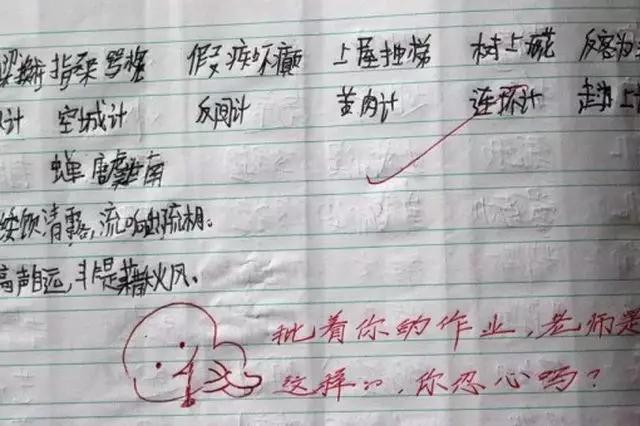 梁换 指桑骂槐 假痴不癫 上屋抽梯 树上开花 反客为
计 空城计 反间计 苦肉计 连环计 走为上
蝉 虞世南
緌饮清露,流响出疏桐。
高声自远,非是藉秋风。
批着你的作业,老师是
这样的,你忍心吗?